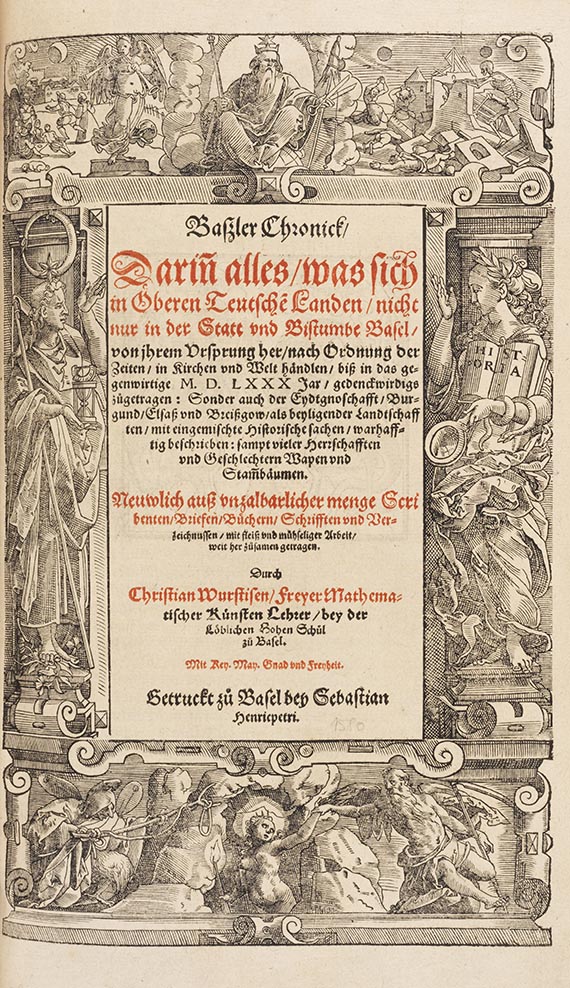 Baßler Chronick/
Dariñ alles/was sich
in Oberen Teutschẽ Landen/nicht
nur in der Statt vnd Bistumbe Basel/
von jhrem Vrsprung her/nach Ordnung der
Zeiten/in Kirchen vnd Welt händlen/biß in das ge-
genwirtige M. D. LXXX Jar/gedenckwirdigs
zůgetragen: Sonder auch der Eydtgnoschafft/Bur-
gund/Elsaß vnd Breißgow/als beyligender Landtschaff
ten/mit eingemischte Historische sachen/warhaff-
tig beschrieben: sampt vieler Herrschafften
vnd Geschlechtern Wapen vnd
Stam̃bäumen.
Neuwlich auß vnzalbarlicher menge Scri
benten/Briefen/Büchern/Schrifften vnd Ver-
zeichnussen/mit fleiß vnd mühseliger Arbeit/
weit her zůsamen getragen.
Durch
Christian Wurstisen/Freyer Mathema-
tischer Künsten Lehrer/bey der
Löblichen Hohen Schůl
zů Basel.
Mit Key. May. Gnad vnd Freyheit.
Getruckt zů Basel bey Sebastian
Henricpetri.
1580
HIST
ORIA